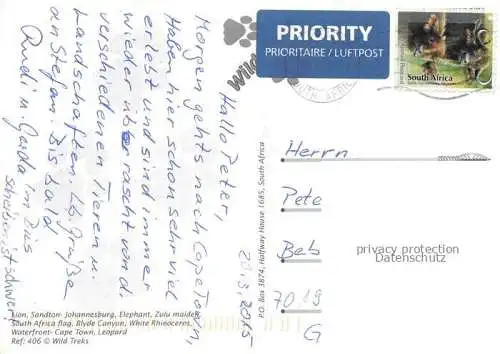 PRIORITY
PRIORITAIRE / LUFTPOST
South Africa
Hallo Peter,
Morgen geht's nach Cape Town.
Haben hier schon sehr viel
erlebt und sind immer
wieder überrascht von d.
verschiedenen Tieren u.
Landschaften. Lb. Grüße
an Stefan. Bis bald
Rudi u. Gerda im Bus
schreiben ist schwer!
28.3.2015
Herrn
Pete
Beb
7019
G
privacy protection
Datenschutz
P.O. Box 3874, Halfway House 1685, South Africa
Lion, Sandton- Johannesburg, Elephant, Zulu maiden,
South Africa flag, Blyde Canyon, White Rhinoceros,
Waterfront- Cape Town, Leopard
Ref: 406 © Wild Treks